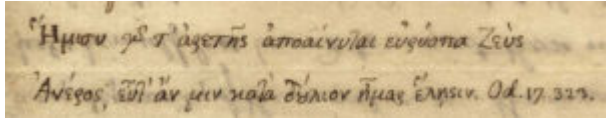 Ἥμισυ γὸ τ' ἀρετῆς ἀποαίνυται εὐρύοπα Ζεὺς
Ἀνέρος, εὖτ' ἄν μιν κατὰ δούλιον ἦμαρ ἕλησιν. Od. 17. 323.